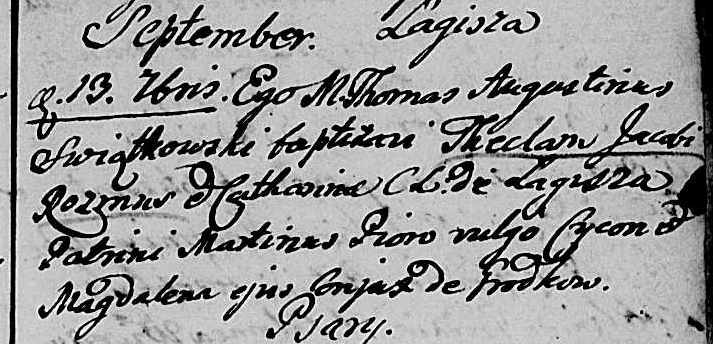 September. Lagisza
d. 13. 7bris. Ego M. Thomas Augustinus
Swiątkowski baptizavi Theclam Jacobi
Rozmus et Catharinæ C. L. de Lagisza
Patrini Martinus Pioro vulgo Cycon et
Magdalena ejus Conjux de Grodkow.
Psary.